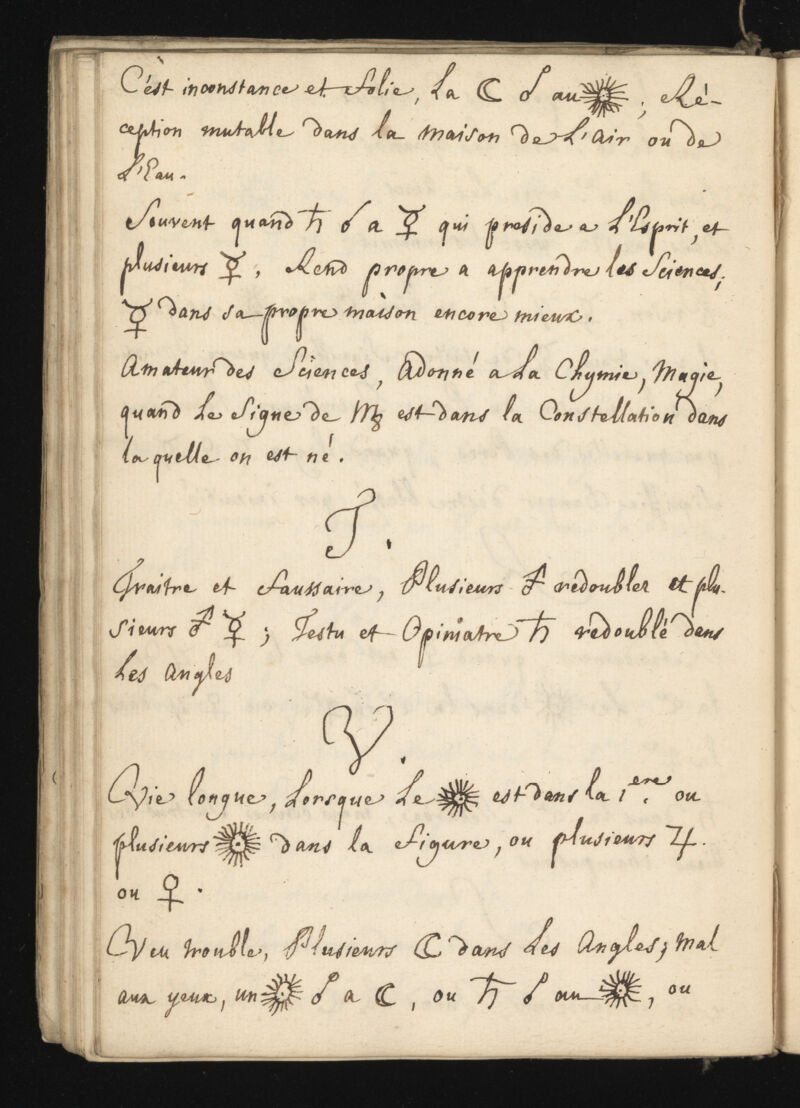 C'est inconstance et folie, La ☾ ☌ au ☉ ; Ré-
ception mutable dans la maison de L'air ou de
L'Eau.
Souvent quand ♄ ☌ a ☿ qui preside a L'Esprit, et
plusieurs ☿, Rend propre a apprendre les Sciences;
☿ dans sa propre maison encore mieux.
Amateur des Sciences, Adonné a La Chymie, Magie,
quand Le Signe de ♍ est dans la Constellation dans
laquelle on est né.
T.
Traitre et faussaire, Plusieurs ♂ redoubler et plu-
sieurs ♂ ☿ ; Testu et Opiniatre ♄ redoublé dans
Les Angles
V.
Vie longue, Lorsque Le ☉ est dans la 1.ere ou
plusieurs ☉ dans la figure, ou plusieurs ♃.
ou ♀.
Veu trouble, Plusieurs ☾ dans Les Angles; mal
aux yeux, un ☉ ☌ a ☾, ou ♄ ☌ au ☉, ou